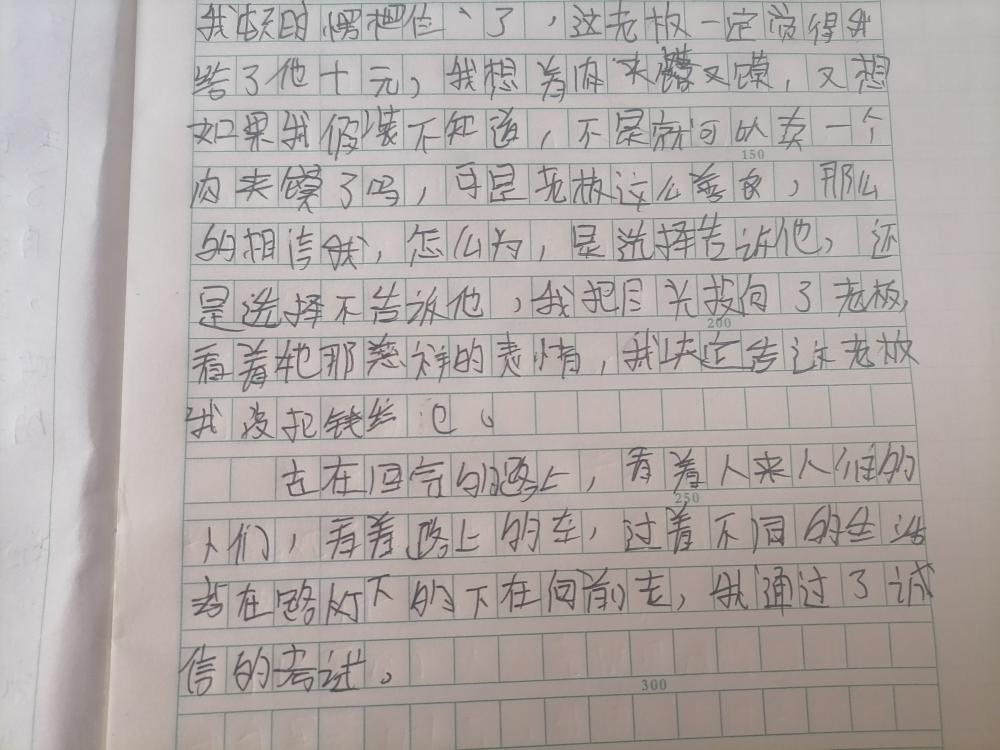 我顿时愣住了，这老板一定觉得我
给了他十元，我想着肉夹馍又馍，又想
如果我假装不知道，不是就可以卖一个
150
肉夹馍了吗，可是老板这么善良，那么
的相信我，怎么为，是选择告诉他，还
是选择不告诉他，我把目光投向了老板，
200
看着他那慈祥的表情，我决定告诉老板
我没把钱给他。
走在回家的路上，看着人来人往的
250
人们，看着路上的车，过着不同的生活
在路灯下的下在向前走，我通过了诚
信的考试。
300